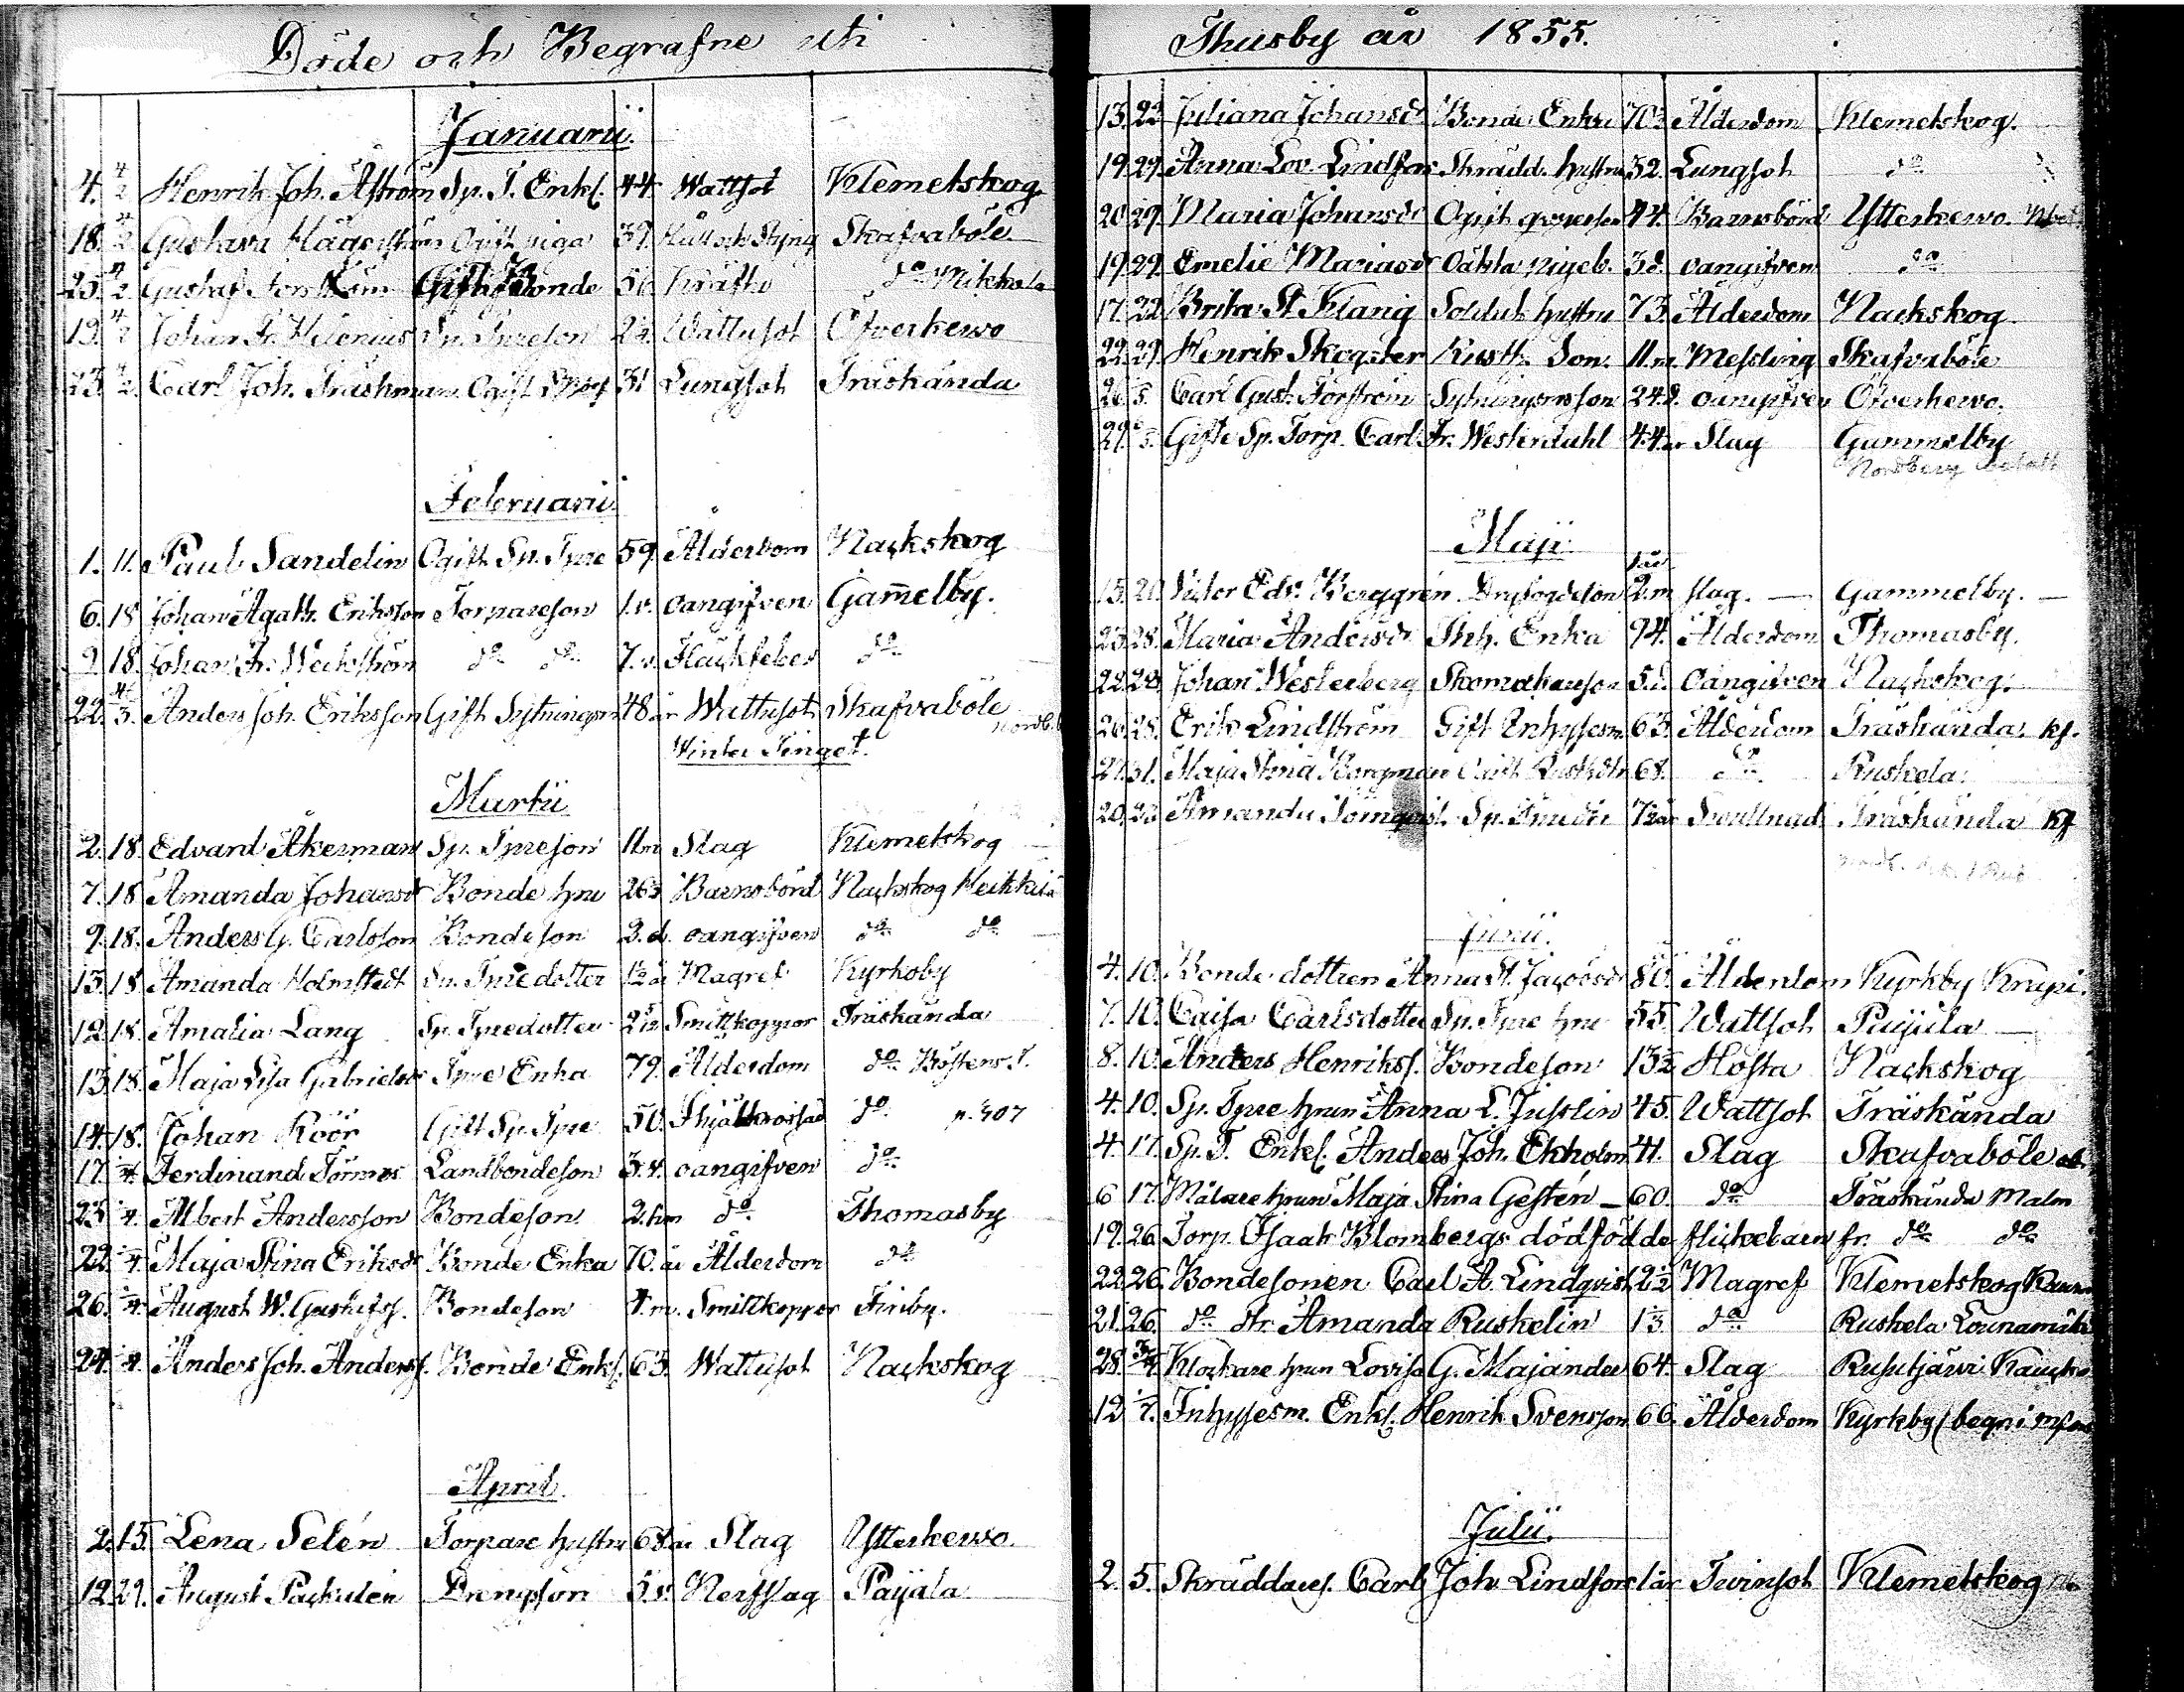 Döde och Begrafne uti
Januarii
4. 4/2 Henrik Joh. Åström Sp. T. Enkl. 44. Wattsot Klemetskog
18. 4/2 Gustava Hägerström Ogift piga 39. Håll och Styng Skafvaböle
25. 4/2 Gustaf Gift Bonde 56. Kräfta do Mikkola
19. 4/2 Johan Fr. Helenius Sp. Tpreson Wattusot Öfverkervo
23. 4/2. Carl Joh. Träskman Ogift 31 Lungsot Träskända
Februarii
1. 11. Paul Sandelin Ogift Sp. Tpre 59. Ålderdom Nackskog
6. 18 Johan Agath. Erikson Torpareson 1.v. oangifven Gam̄elby.
9 18. Johan Fr. Weckström do do 7.v. Fläckfeber do
22. 4/3. Anders Joh. Eriksson Gift Sytningsm 48 år Wattusot Skafvaböle
Winter Tinget.
Martii
2. 18. Edvard Åkerman Sp. Tpreson 11m Slag Klemetskog
7. 18 Amanda Johansdr Bonde hru 26 Barnsbörd Nackskog Heikkilä
9. 18. Anders G. Carlsson Bondeson 3.d. oangifven do do
13. 18 Amanda Holmstedt Sp. Tpredotter 1/2 år Magref Kyrkoby
12. 18. Amalia Lang Sp. Tpredotter 2 Smittkoppor Träskända
13. 18. Maja Lisa Gabrielsdr Tpre Enka 79. Ålderdom do Böstens T.
14. 18. Johan Köör Gift Sp. Tpre 50. Ihjälkrossad do p. 407
17. /4. Ferdinand Törnros Landbondeson 3.v. oangifven do
23 /4. Albert Andersson Bondeson 2.tim do Thomasby
22. /4. Maja Stina Eriksdr Bonde Enka 70. år Ålderdom do
26. /4. August W. Gustafss. Bondeson 4.m. Smittkoppor Finby.
24. /4. Anders Joh. Anderss. Bonde Enkl. 63. Wattusot Nackskog
April
2. 15. Lena Selén Torpare hustru 68 år Slag Ytterkervo
12 29. August Packalén Drengson 5.v. Nerfslag Payala
Thusby år 1855.
13. 22 Juliana Johansdr Bonde Enka 70. Ålderdom Klemetskog.
19. 29. Anna Lov. Lindfors Skrädd. hustru 32. Lungsot do
20. 29. Maria Johansdr Ogift 44. Barnsbörd Ytterkervo.
19. 29. Emelie Mariasdr Oäkta pigeb. 3d. oangifven do
17. 22 Brita St. Klang Soldat hustru 73. Ålderdom Nackskog.
22. 29. Henrik Skogster Rusth. Son. 11.m. Messling Skafvaböle
26 /5. Carl Gust. Forström Sytningsmsson 24.d. oangifven Öfverkervo.
29. /5. Gifte Sp. Torp. Carl Fr. Westerdahl 44 år Slag Gammelby
Nordberg betalt
Maji
15. 20. Victor Edv. Berggrén 2.m slag. Gammelby.
23. 28. Maria Andersdr Inh. Enka 94. Ålderdom Thomasby.
22. 28 Johan Westerberg Skomakareson 5.d. Oangifven Nackskog.
26. 28. Erik Lindström Gift Inhysesm. 63. Ålderdom Träskända. Kf.
27. 31. Maja Stina Bergman 68. do Ruskela
20. 23 Amanda Törnqvist Sp. Tpredtr 7 år Svullnad Träskända Kf
Junii.
4. 10. Bonde dottren Anna St. Jacobsdr 80. Ålderdom Kyrkby Krupi.
7. 10. Caisa Carlsdotter Sp. Tpre hru 55 Wattsot Payala
8. 10. Anders Henrikss. Bondeson 13 1/2 Hosta Nackskog
4. 10. Sp. Tpre hrun Anna L. Jusslin 45. Wattsot Träskända
4. 17. Sp. T. Enkl. Anders Joh. Ekholm 41. Slag Skafvaböle
6 17. Målare hrun Maja Stina Gestén 60. do Träskända Malm
19. 26. Torp. Isaak Blombergs dödfödde flickebarn fr. do do
22. 26. Bondesonen Carl A. Lindqvist 2 1/2 Magref Klemetskog
21. 26. do dtr Amanda Ruskelin 13 do Ruskela Lounamäki
28. Klockare hrun Lovisa G. Majander 64 Slag Rusutjärvi
12. /7. Inhysesm. Enkl. Henrik Svensson 66. Ålderdom Kyrkby
Julii.
2. 5. Skräddares. Carl Joh. Lindfors 1 år Tvinsot Klemetskog